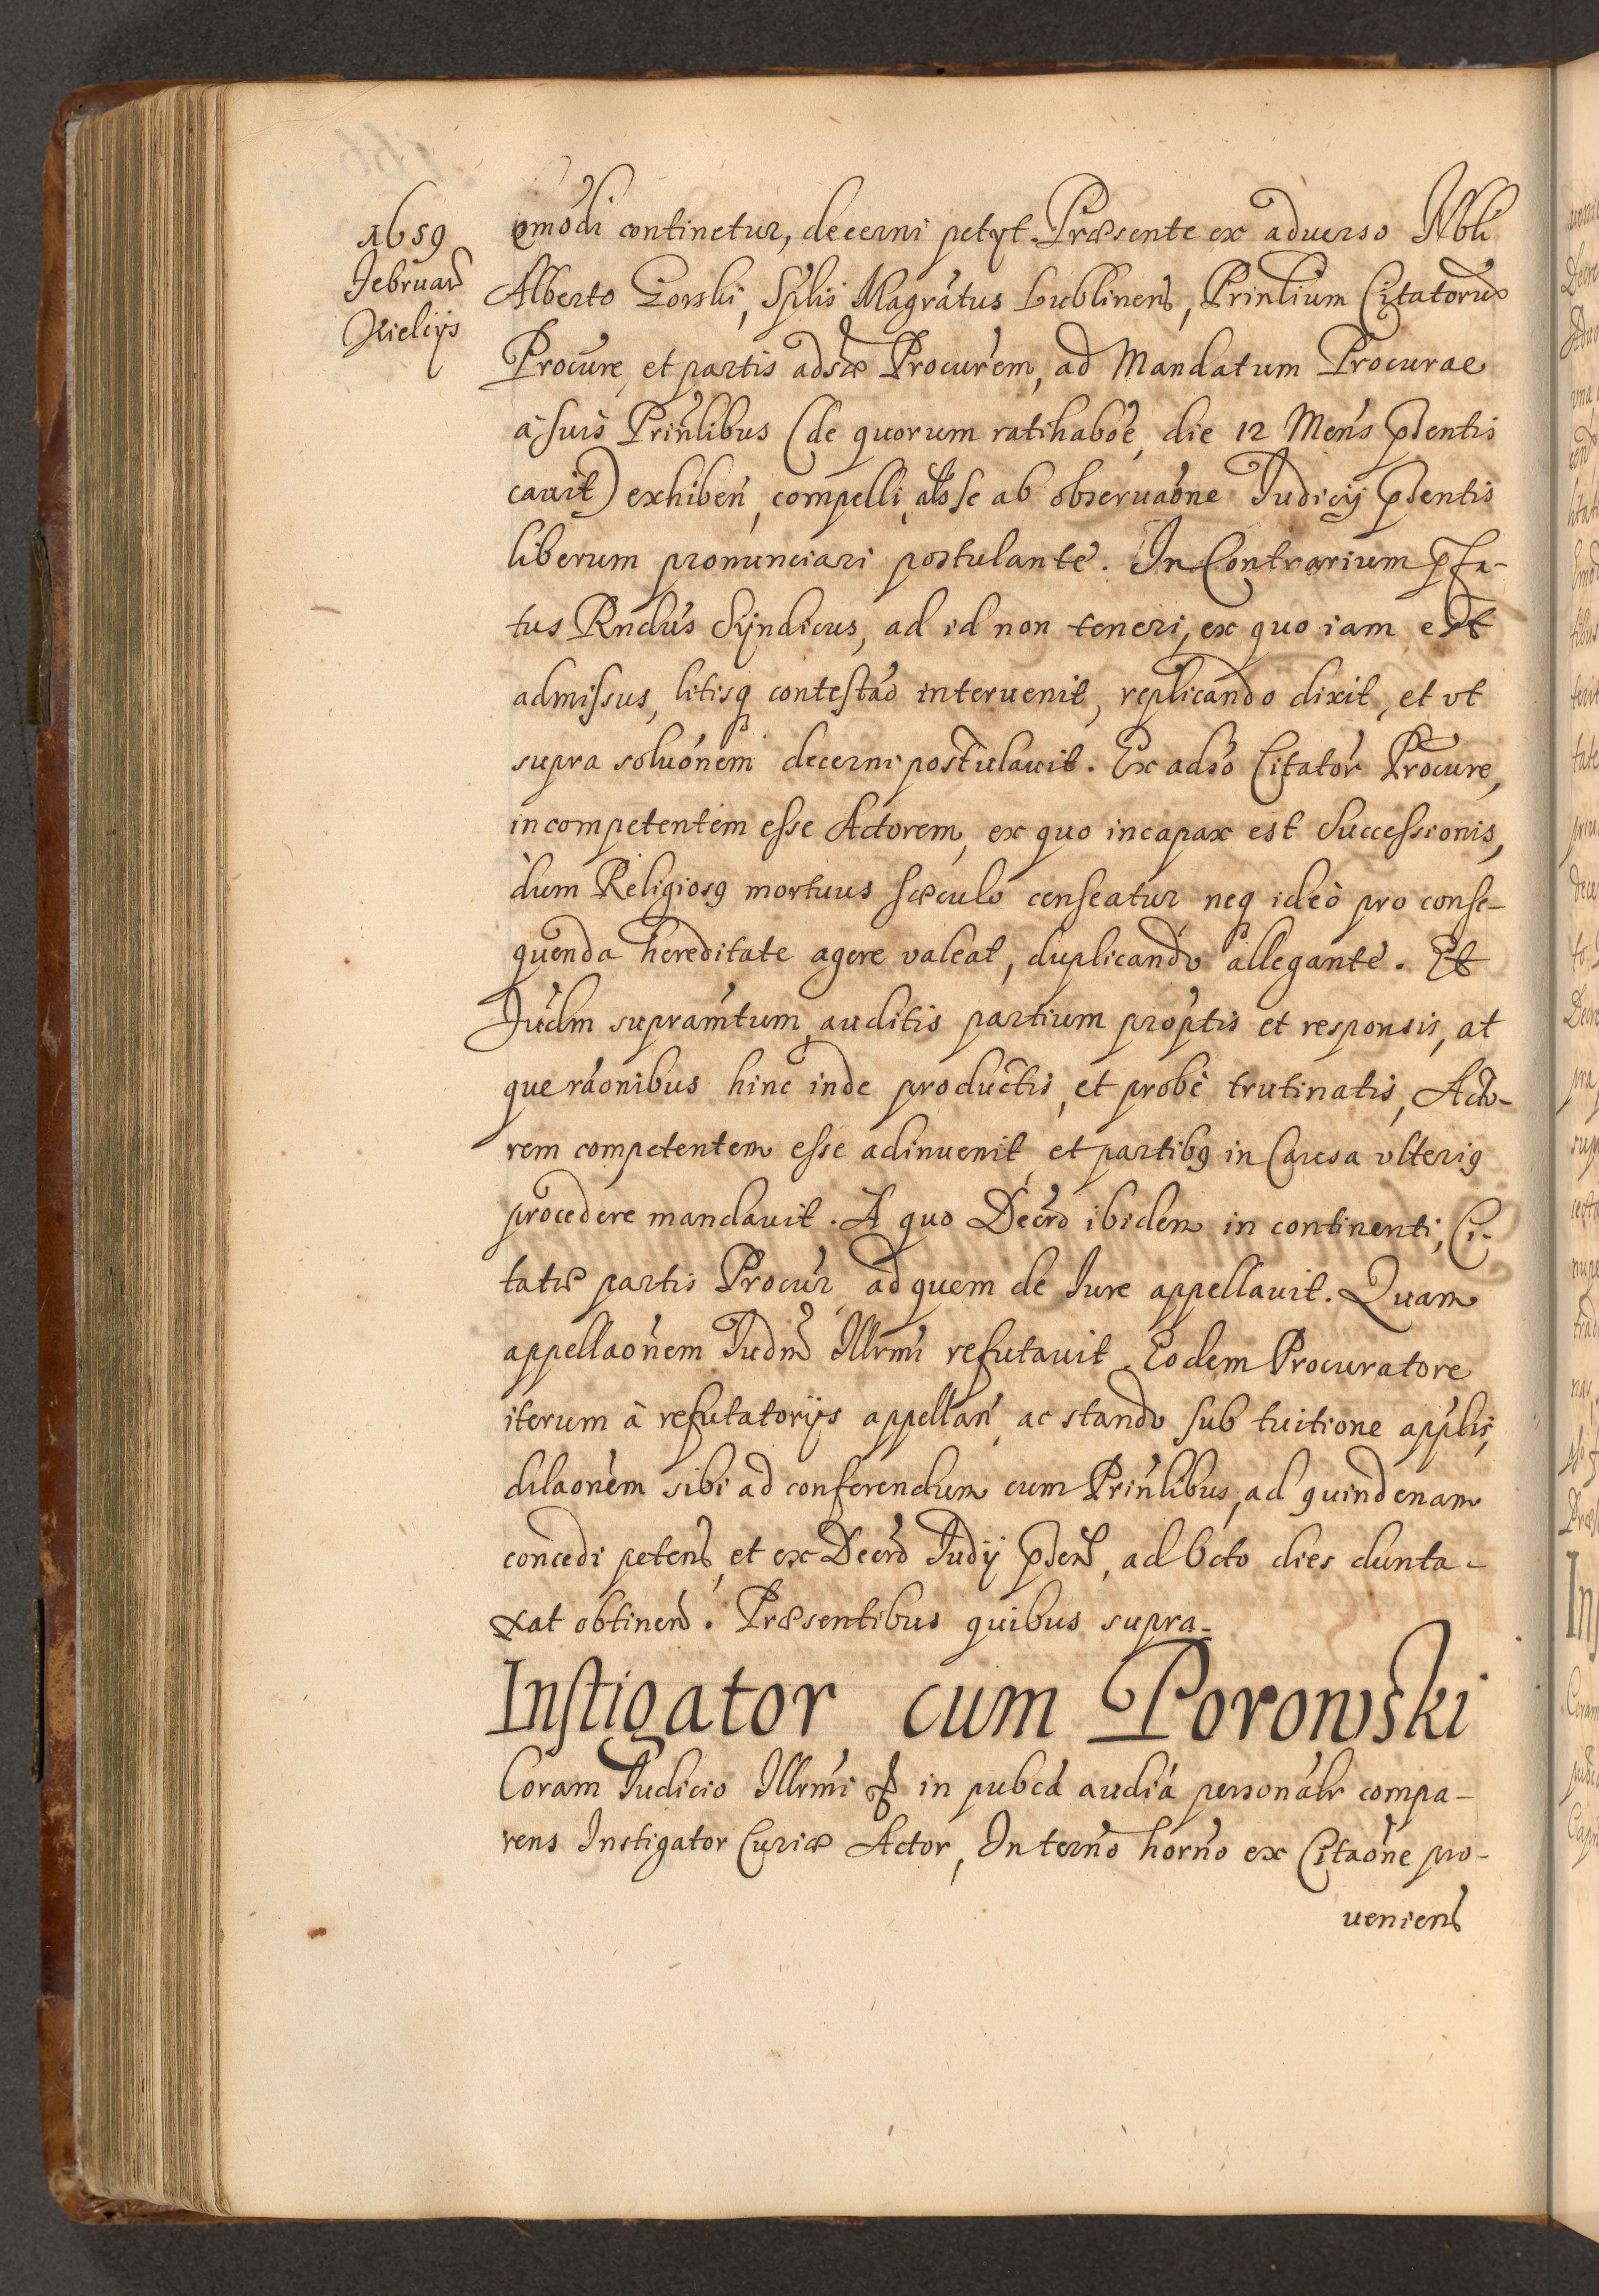 1659
Februarͦ
Kielcijs
emódi continetur, decerni petyt. Præsente ex aduerso Nbli
Alberto Gorski, Spłis Magrátus Lublinens, Prinlium Citatorũ
Procũre, et partis adsæ Procuŕem, ad Mandatum Procurae
à suis Prińlibus (de quorum ratihabóe, die 12 Meńs pdentis
cauit) exhibeń, compelli, als se ab obseruaóne Iudicij pdentis
liberum pronunciari postulante. In Contrarium pfa-
tus Rndús Syndicus, ad id non teneri, ex quo iam est
admissus, litisq contestaó interuenit, replicando dixit, et vt
supra soluónem decerni postulauit. Ex adsó Citatoŕ Procure,
incompetentem esse Actorem, ex quo incapax est Successionis,
dum Religiosꝰ mortuus sæculo censeatur neq ideò pro conse-
quenda hereditate agere valeat, duplicando allegante. Et
Iudm supramtum, auditis partium propŕtis et responsis, at
que raónibus hinc inde productis, et probè trutinatis, Acto-
rem competentem esse adinuenit, et partibꝰ in Causa vlteriꝰ
procedere mandauit. A quo Decro ibidem in continenti, Ci-
tatæ partis Procur, ad quem de Iure appellauit. Quam
appellaónem Iudm Illrmi refutauit. Eodem Procuratore
iterum à refutatorijs appellań, ac stando sub tuitione applis,
dilaónem sibi ad conferendum cum Prińlibus, ad quindenam
concedi petens, et ex Decro Iudij pden, ad octo dies dunta-
xat obtinen. Præsentibus quibus supra-
Instigator cum Porowski
Coram Iudicio Illrmi & in pubcá audiá personalr compa-
rens Instigator Curiæ Actor, In terno horno ex Citaóne pro-
ueniens